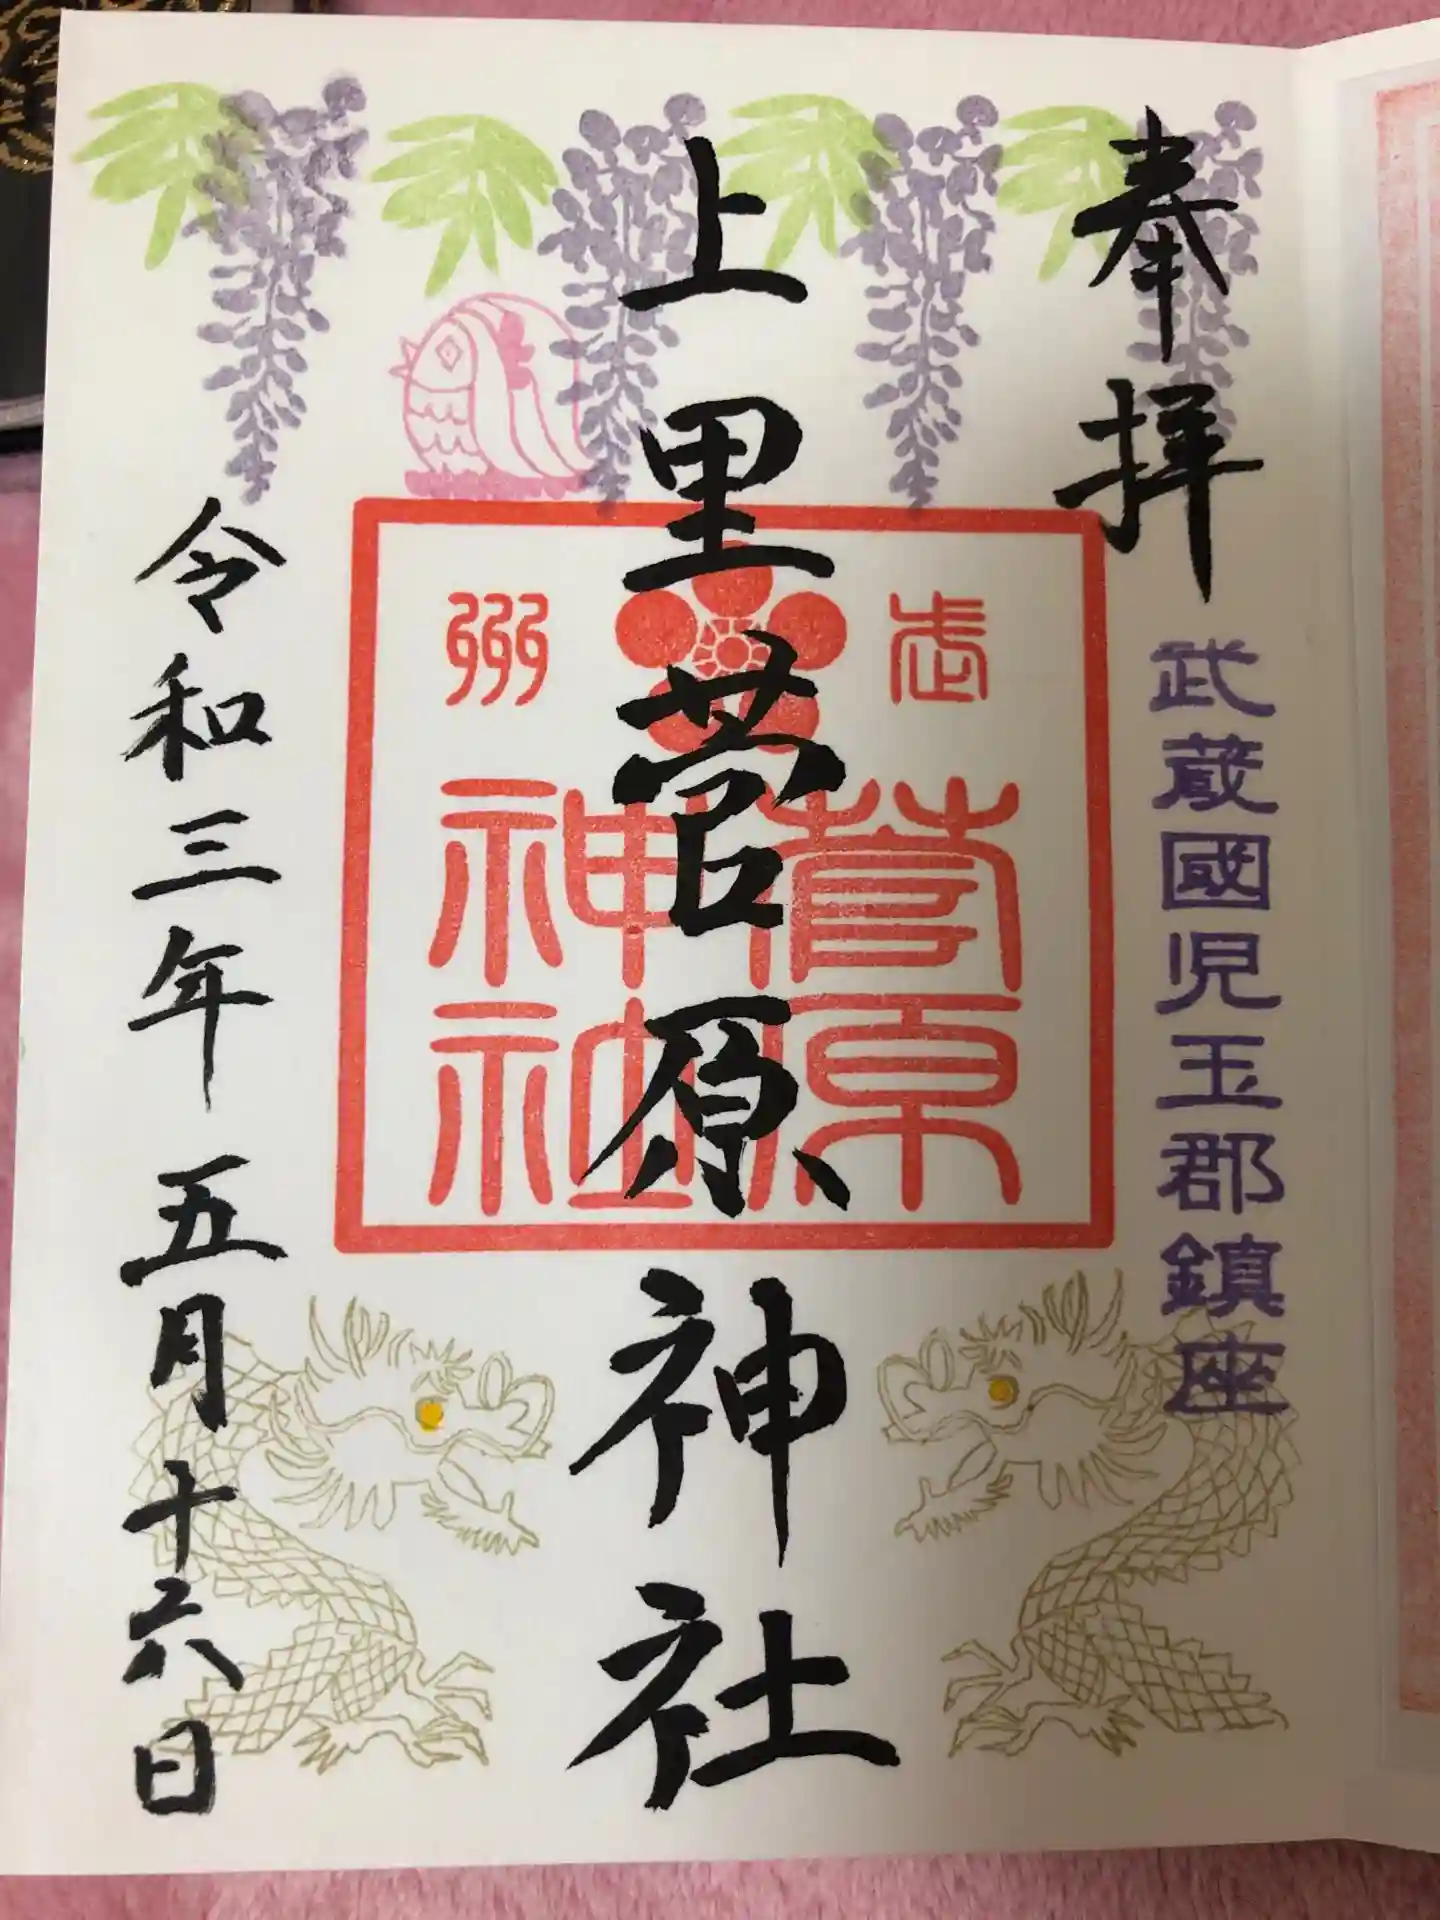 奉拝
武蔵國児玉郡鎮座
上里菅原神社
武州
菅原
神社
令和三年五月十六日